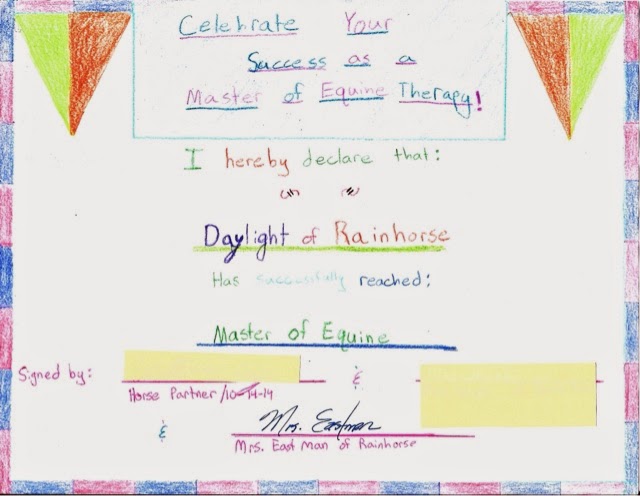 Celebrate Your
Success as a
Master of Equine Therapy!
I hereby declare that:
Daylight of Rainhorse
Has successfully reached:
Master of Equine
Signed by:
&
Horse Partner/10-14-14
& Mrs. Eastman
Mrs. East Man of Rainhorse